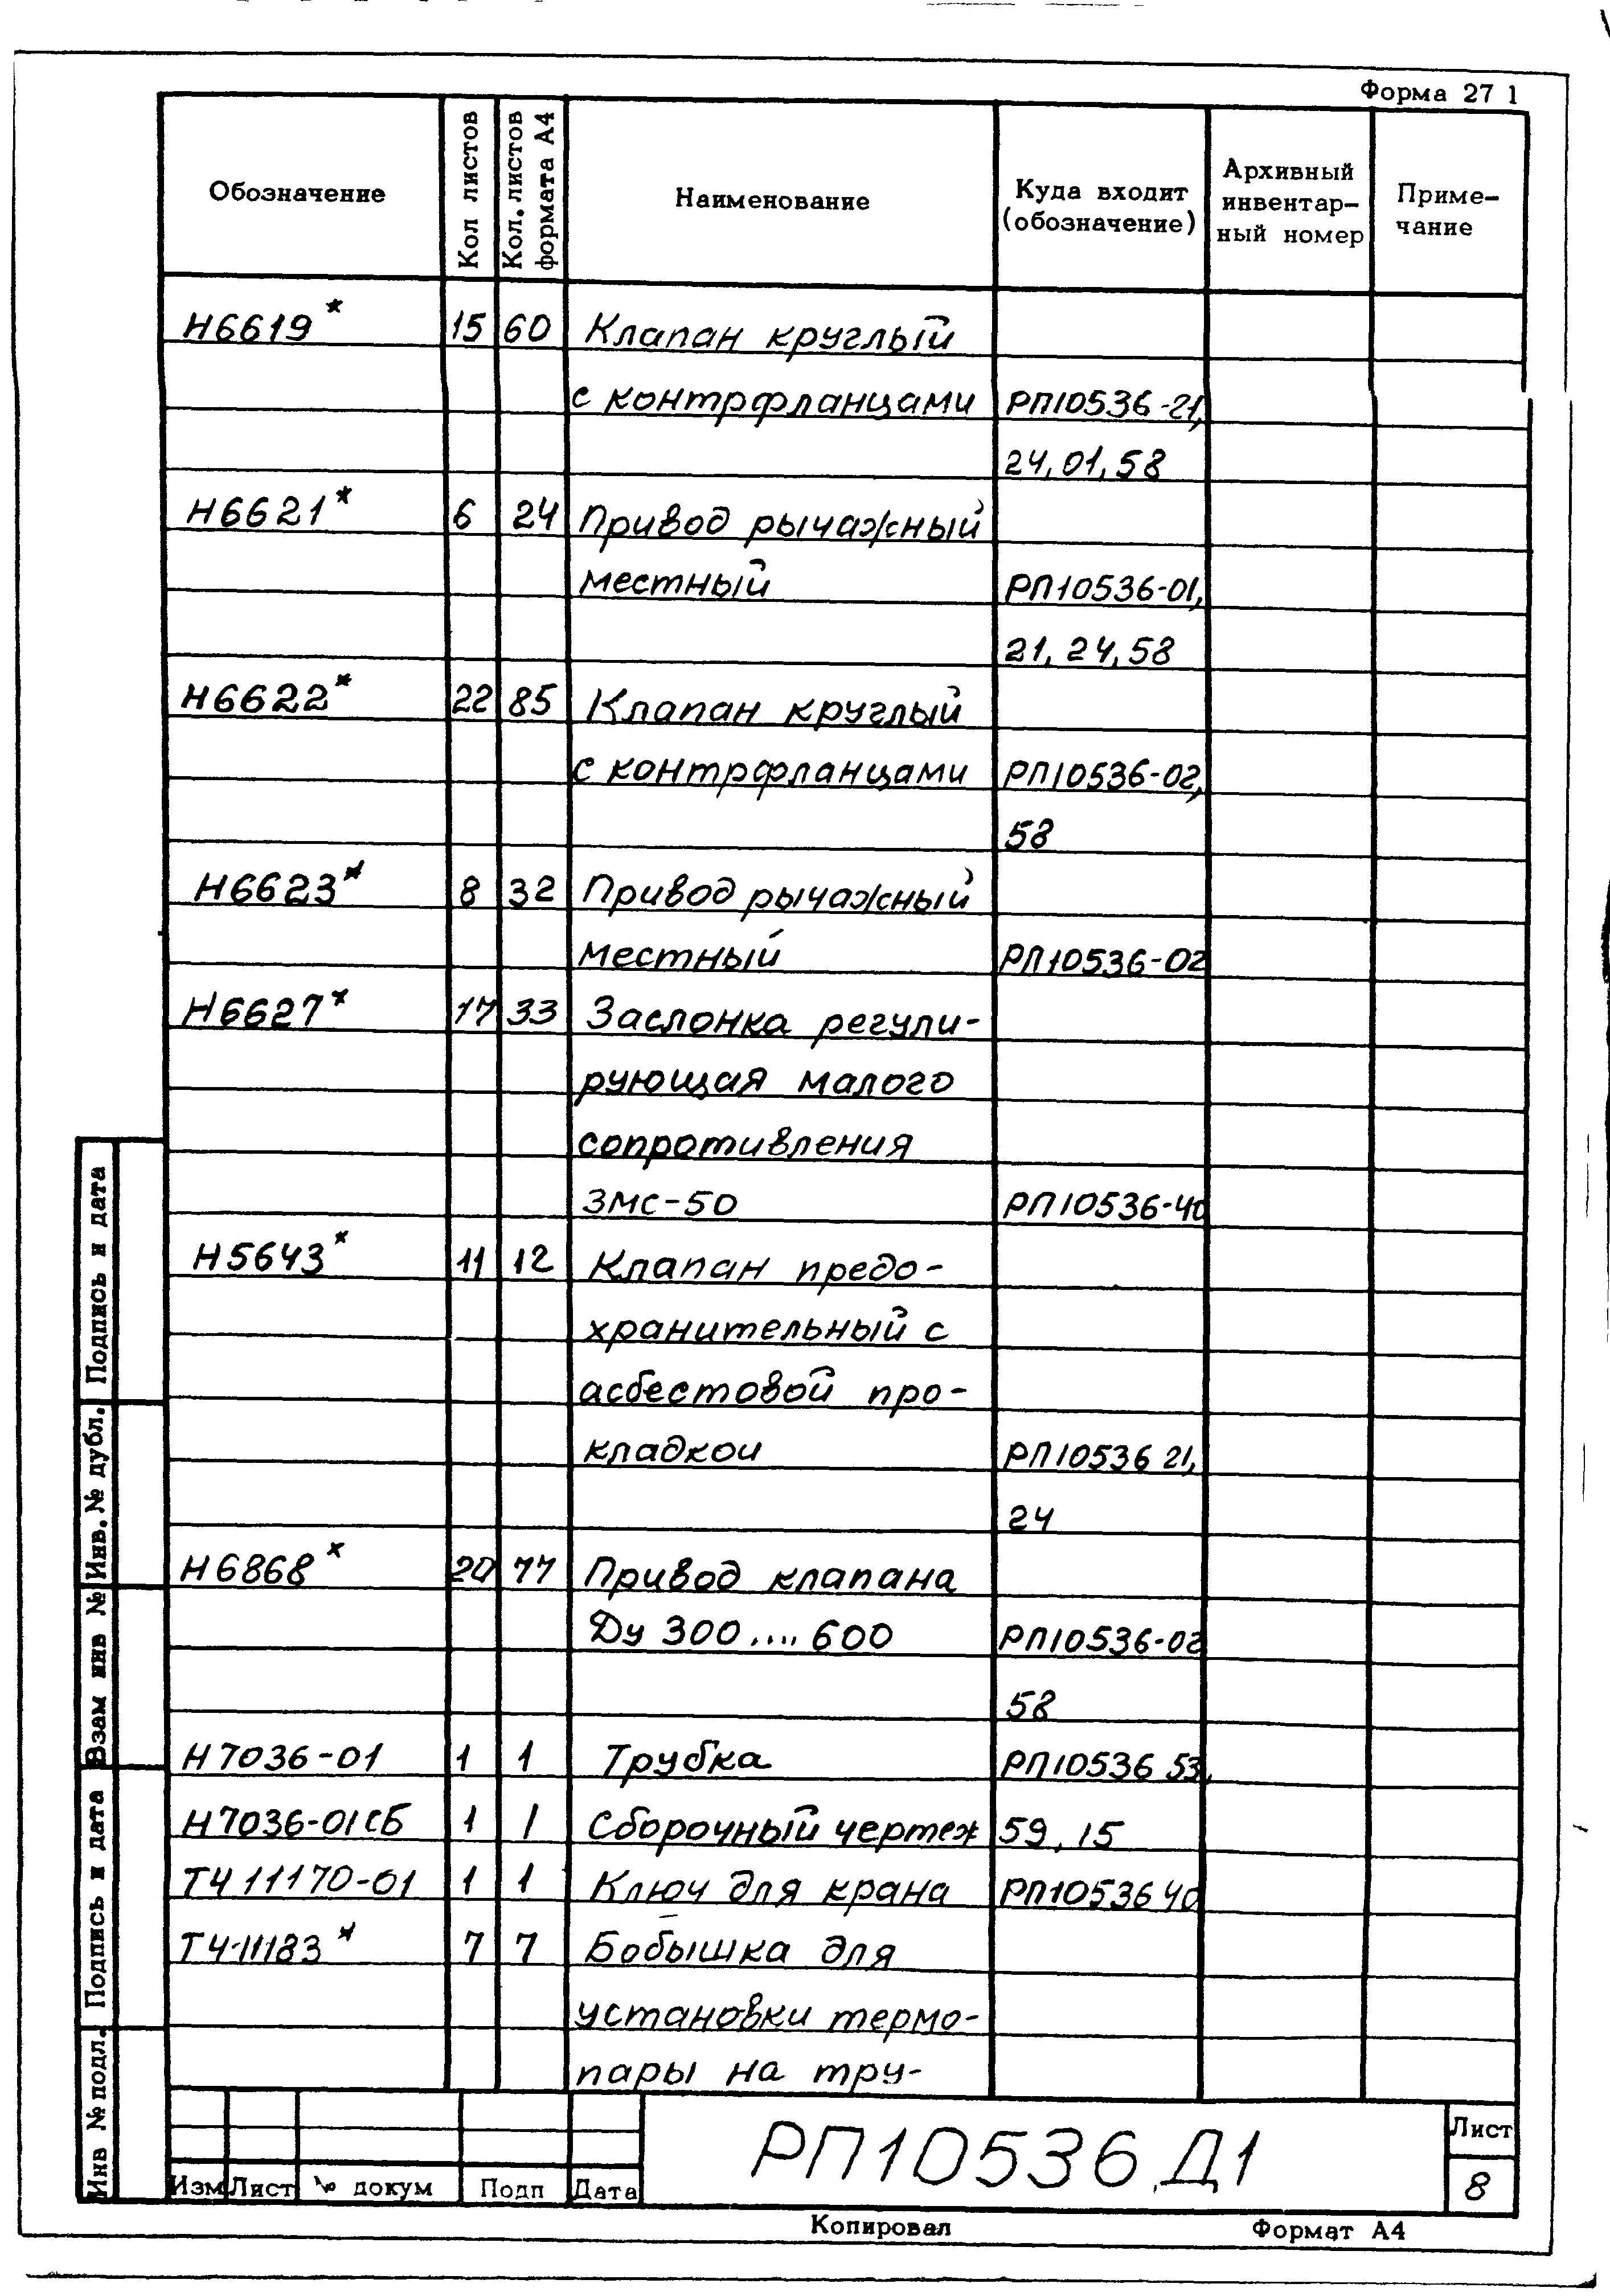 Форма 27 1
Обозначение
Кол листов
Кол. листов формата А4
Наименование
Куда входит (обозначение)
Архивный инвентар- ный номер
Приме- чание
Н6619* 15 60 Клапан круглый
с контрфланцами РП10536-21,
24, 01, 58
Н6621* 6 24 Привод рычажный
местный РП10536-01,
21, 24, 58
Н6622* 22 85 Клапан круглый
с контрфланцами РП10536-02,
58
Н6623* 8 32 Привод рычажный
местный РП10536-02
Н6627* 17 33 Заслонка регули-
рующая малого
сопротивления
ЗМС-50 РП10536-40
Н5643* 11 12 Клапан предо-
хранительный с
асбестовой про-
кладкои РП10536 21,
24
Н6868* 20 77 Привод клапана
Ду 300....600 РП10536-02
58
Н7036-01 1 1 Трубка РП10536 53,
Н7036-01СБ 1 1 Сборочный чертеж 59, 15
ТЧ 11170-01 1 1 Ключ для крана РП10536 40
ТЧ-11183* 7 7 Бобышка для
установки термо-
пары на тру-
Подпись и дата
Инв. № дубл.
Взам инв №
Подпись и дата
Инв № подл.
Изм Лист № докум Подп Дата
РП10536 Д1
Лист
8
Копировал Формат А4